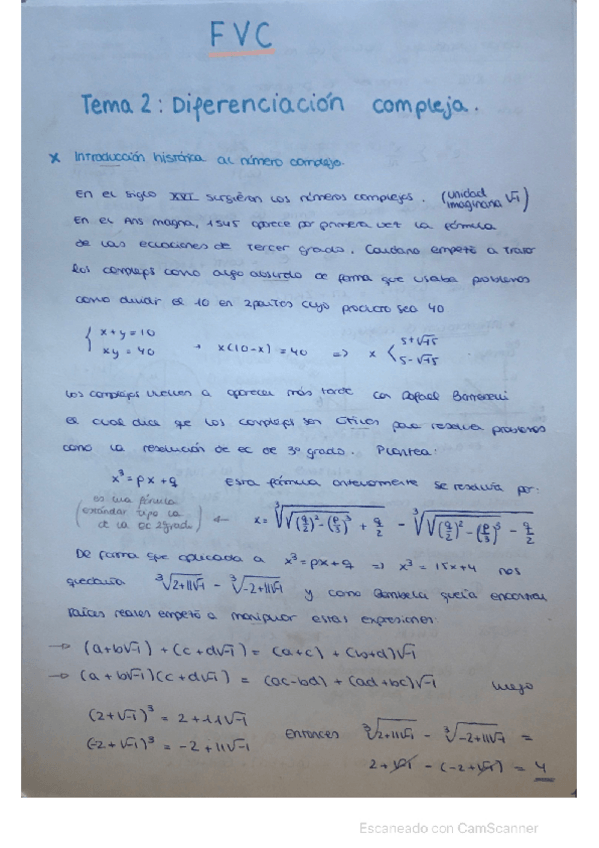 FVC
Tema 2: Diferenciación compleja.
x Introducción histórica al número complejo.
En el siglo XVI surgieron los números complejos. (unidad imaginaria √-1)
En el Ars magna, 1545 aparece por primera vez la fórmula
de las ecuaciones de tercer grado. Cardano empezó a tratar
los complejos como algo absurdo de forma que usaba problemas
como dividir el 10 en 2 partes cuyo producto sea 40
{ x+y=10 xy=40 → x(10-x)=40 => x < 5+√-15 5-√-15
Los complejos vuelven a aparecer más tarde con Rafael Bombelli
el cual dice que los complejos son útiles para resolver problemas
como la resolución de ec de 3º grado. Plantea:
x³=px+q esta fórmula anteriormente se resolvía por:
(es una fórmula estándar tipo la de la ec 2ºgrado) ← x = ∛(√((q/2)²-(p/3)³) + q/2) - ∛(√((q/2)²-(p/3)³) - q/2)
De forma que aplicada a x³=px+q => x³=15x+4 nos
quedaría ∛(2+11√-1) - ∛(-2+11√-1) y como Bombela quería encontrar
raíces reales empezó a manipular estas expresiones:
→ (a+b√-1)+(c+d√-1)=(a+c)+(b+d)√-1
→ (a+b√-1)(c+d√-1)=(ac-bd)+(ad+bc)√-1 luego
(2+√-1)³=2+11√-1
(-2+√-1)³=-2+11√-1 entonces ∛(2+11√-1) - ∛(-2+11√-1) =
2+√-1-(-2+√-1)=4
Escaneado con CamScanner